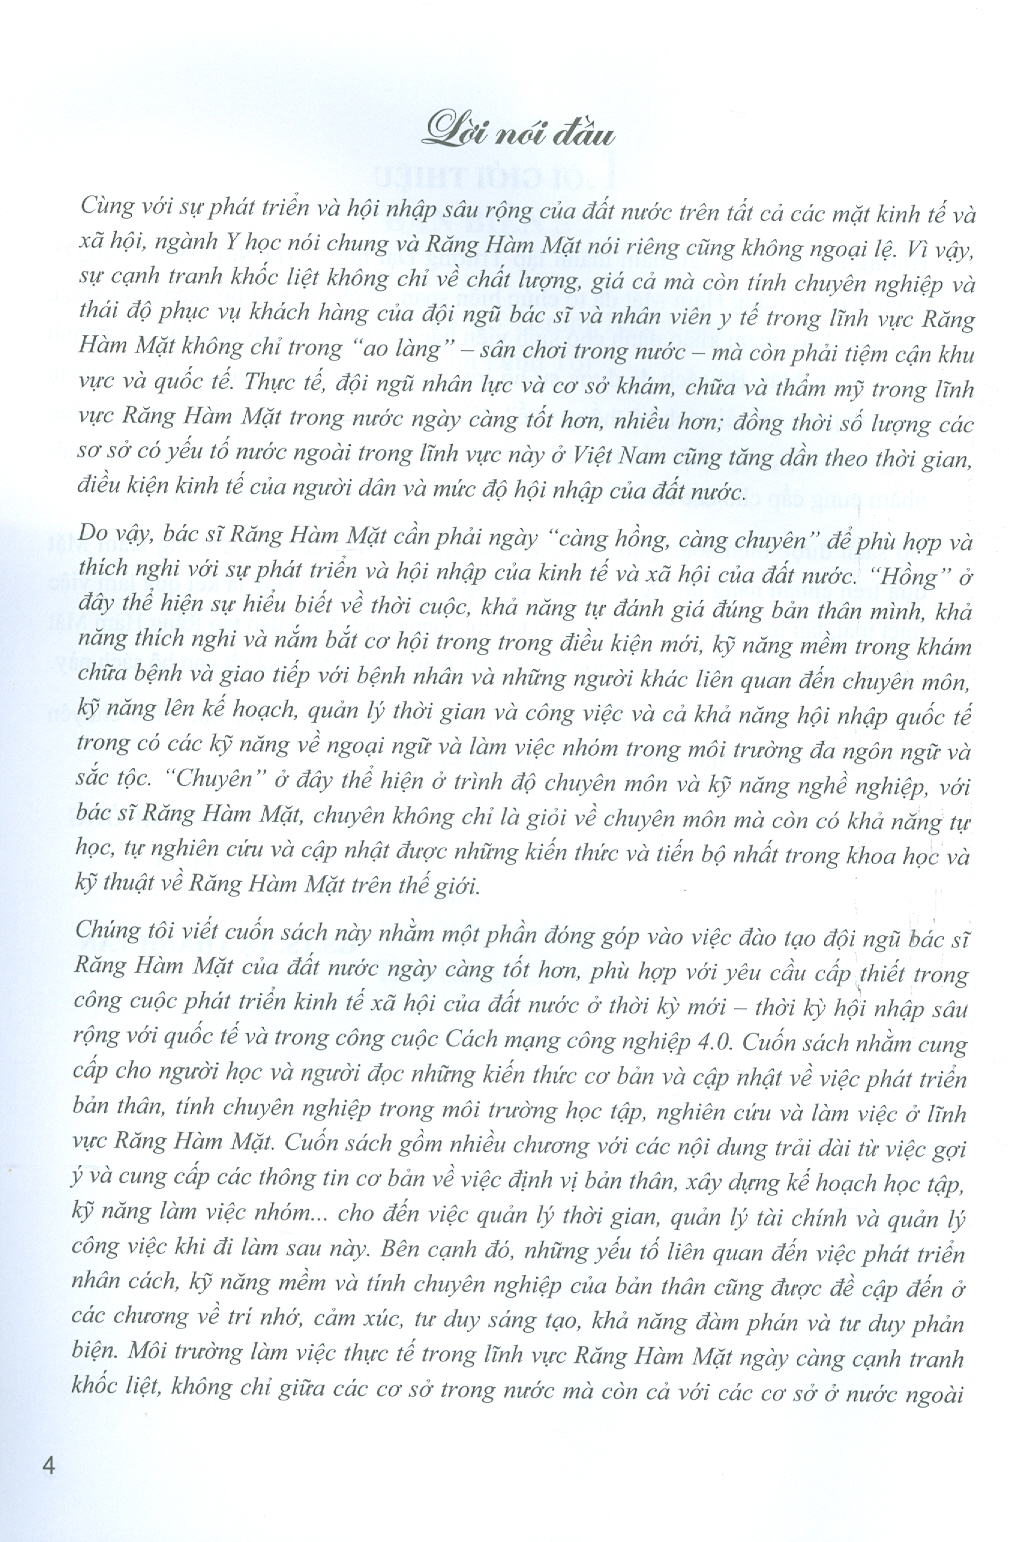 Lời nói đầu
Cùng với sự phát triển và hội nhập sâu rộng của đất nước trên tất cả các mặt kinh tế và
xã hội, ngành Y học nói chung và Răng Hàm Mặt nói riêng cũng không ngoại lệ. Vì vậy,
sự cạnh tranh khốc liệt không chỉ về chất lượng, giá cả mà còn tính chuyên nghiệp và
thái độ phục vụ khách hàng của đội ngũ bác sĩ và nhân viên y tế trong lĩnh vực Răng
Hàm Mặt không chỉ trong “ao làng” – sân chơi trong nước – mà còn phải tiệm cận khu
vực và quốc tế. Thực tế, đội ngũ nhân lực và cơ sở khám, chữa và thẩm mỹ trong lĩnh
vực Răng Hàm Mặt trong nước ngày càng tốt hơn, nhiều hơn; đồng thời số lượng các
sơ sở có yếu tố nước ngoài trong lĩnh vực này ở Việt Nam cũng tăng dần theo thời gian,
điều kiện kinh tế của người dân và mức độ hội nhập của đất nước.
Do vậy, bác sĩ Răng Hàm Mặt cần phải ngày “càng hồng, càng chuyên” để phù hợp và
thích nghi với sự phát triển và hội nhập của kinh tế và xã hội của đất nước. “Hồng” ở
đây thể hiện sự hiểu biết về thời cuộc, khả năng tự đánh giá đúng bản thân mình, khả
năng thích nghi và nắm bắt cơ hội trong trong điều kiện mới, kỹ năng mềm trong khám
chữa bệnh và giao tiếp với bệnh nhân và những người khác liên quan đến chuyên môn,
kỹ năng lên kế hoạch, quản lý thời gian và công việc và cả khả năng hội nhập quốc tế
trong có các kỹ năng về ngoại ngữ và làm việc nhóm trong môi trường đa ngôn ngữ và
sắc tộc. “Chuyên” ở đây thể hiện ở trình độ chuyên môn và kỹ năng nghề nghiệp, với
bác sĩ Răng Hàm Mặt, chuyên không chỉ là giỏi về chuyên môn mà còn có khả năng tự
học, tự nghiên cứu và cập nhật được những kiến thức và tiến bộ nhất trong khoa học và
kỹ thuật về Răng Hàm Mặt trên thế giới.
Chúng tôi viết cuốn sách này nhằm một phần đóng góp vào việc đào tạo đội ngũ bác sĩ
Răng Hàm Mặt của đất nước ngày càng tốt hơn, phù hợp với yêu cầu cấp thiết trong
công cuộc phát triển kinh tế xã hội của đất nước ở thời kỳ mới – thời kỳ hội nhập sâu
rộng với quốc tế và trong công cuộc Cách mạng công nghiệp 4.0. Cuốn sách nhằm cung
cấp cho người học và người đọc những kiến thức cơ bản và cập nhật về việc phát triển
bản thân, tính chuyên nghiệp trong môi trường học tập, nghiên cứu và làm việc ở lĩnh
vực Răng Hàm Mặt. Cuốn sách gồm nhiều chương với các nội dung trải dài từ việc gợi
ý và cung cấp các thông tin cơ bản về việc định vị bản thân, xây dựng kế hoạch học tập,
kỹ năng làm việc nhóm... cho đến việc quản lý thời gian, quản lý tài chính và quản lý
công việc khi đi làm sau này. Bên cạnh đó, những yếu tố liên quan đến việc phát triển
nhân cách, kỹ năng mềm và tính chuyên nghiệp của bản thân cũng được đề cập đến ở
các chương về trí nhớ, cảm xúc, tư duy sáng tạo, khả năng đàm phán và tư duy phản
biện. Môi trường làm việc thực tế trong lĩnh vực Răng Hàm Mặt ngày càng cạnh tranh
khốc liệt, không chỉ giữa các cơ sở trong nước mà còn cả với các cơ sở ở nước ngoài
4